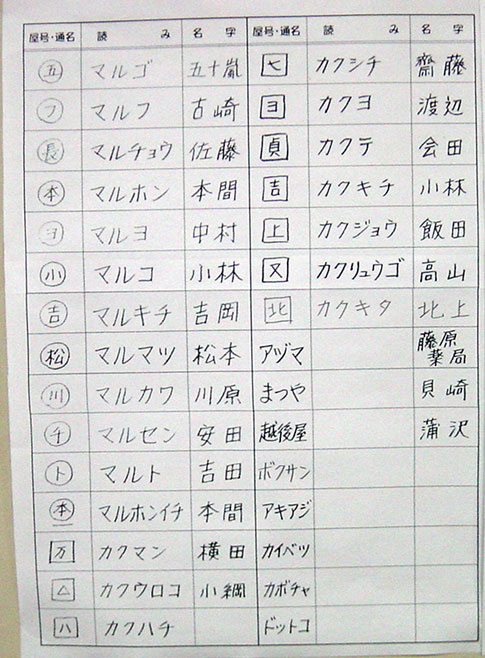 屋号・通名 読み 名字 屋号・通名 読み 名字
五 マルゴ 五十嵐 七 カクシチ 齋藤
フ マルフ 古崎 ヨ カクヨ 渡辺
長 マルチョウ 佐藤 貞 カクテ 会田
本 マルホン 本間 吉 カクキチ 小林
ヨ マルヨ 中村 上 カクジョウ 飯田
小 マルコ 小林 又 カクリュウゴ 高山
吉 マルキチ 吉岡 北 カクキタ 北上
松 マルマツ 松本 アヅマ 藤原薬局
川 マルカワ 川原 まつや 貝崎
千 マルセン 安田 越後屋 蒲沢
ト マルト 吉田 ボクサン
本 マルホンイチ 本間 アキアジ
万 カクマン 横田 カイベツ
△ カクウロコ 小綱 カボチャ
ハ カクハチ ドットコ